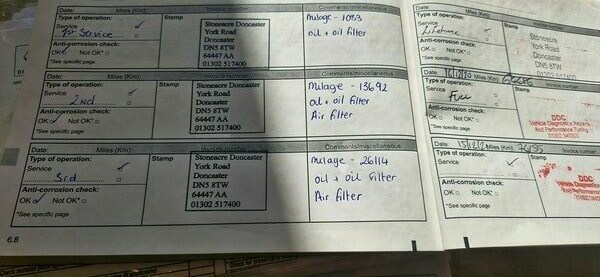 Date: Miles (Km): Invoice number Comments/miscellaneous
Type of operation: Stamp
Service
1st Service
Stoneacre Doncaster
York Road
Doncaster
DN5 8TW
64447 AA
01302 517400
Milage - 1083
oil + oil filter
Anti-corrosion check:
OK Not OK*
*See specific page
Date: Miles (Km): Invoice number Comments/miscellaneous
Type of operation: Stamp
Service
2nd
Stoneacre Doncaster
York Road
Doncaster
DN5 8TW
64447 AA
01302 517400
Milage - 13692
oil + oil filter
Air filter
Anti-corrosion check:
OK Not OK*
*See specific page
Date: Miles (Km): Invoice number Comments/miscellaneous
Type of operation: Stamp
Service
3rd
Stoneacre Doncaster
York Road
Doncaster
DN5 8TW
64447 AA
01302 517400
Milage - 26114
oil + oil filter
Air filter
Anti-corrosion check:
OK Not OK*
*See specific page
6.8
Date: Miles (Km): Invoice number
Type of operation: Stamp
Service
Stoneacre
York Road
Doncaster
DN5 8TW
Anti-corrosion check:
OK Not OK*
*See specific page
Date: Miles (Km): Invoice number
Type of operation: Stamp
Service
Full
DDC
Vehicle Diagnostics Repairs
And Performance Tuning
Anti-corrosion check:
OK Not OK*
*See specific page
Date: Miles (Km): 76155 Invoice number
Type of operation: Stamp
Service
DDC
Anti-corrosion check:
OK Not OK*
*See specific page